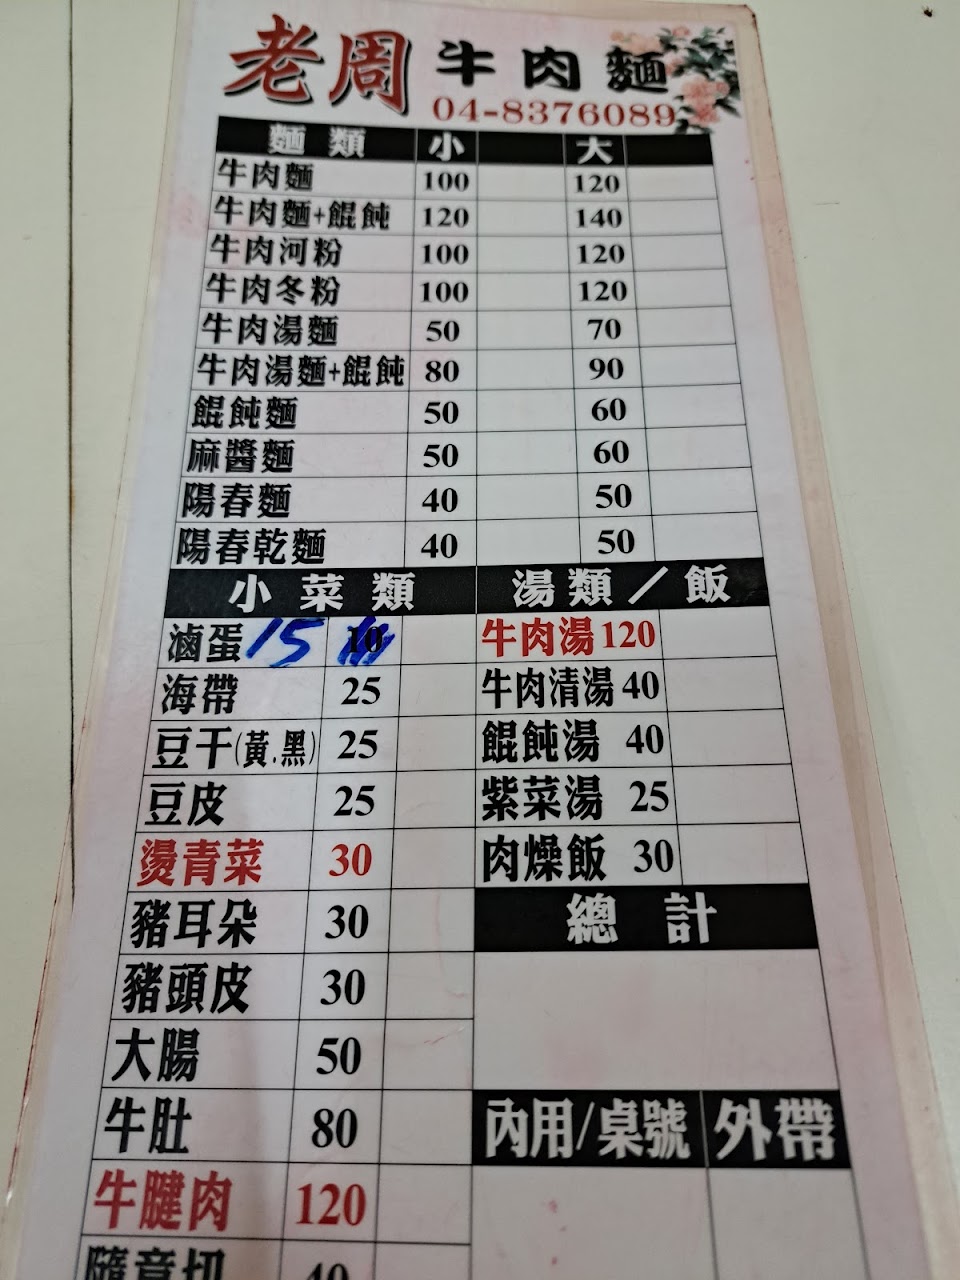 老周 牛肉麵
04-8376089
麵類 小 大
牛肉麵 100 120
牛肉麵+餛飩 120 140
牛肉河粉 100 120
牛肉冬粉 100 120
牛肉湯麵 50 70
牛肉湯麵+餛飩 80 90
餛飩麵 50 60
麻醬麵 50 60
陽春麵 40 50
陽春乾麵 40 50
小菜類
滷蛋 15 10
海帶 25
豆干(黃.黑) 25
豆皮 25
燙青菜 30
豬耳朵 30
豬頭皮 30
大腸 50
牛肚 80
牛腱肉 120
隨意切 40
湯類／飯
牛肉湯 120
牛肉清湯 40
餛飩湯 40
紫菜湯 25
肉燥飯 30
總計
內用/桌號 外帶